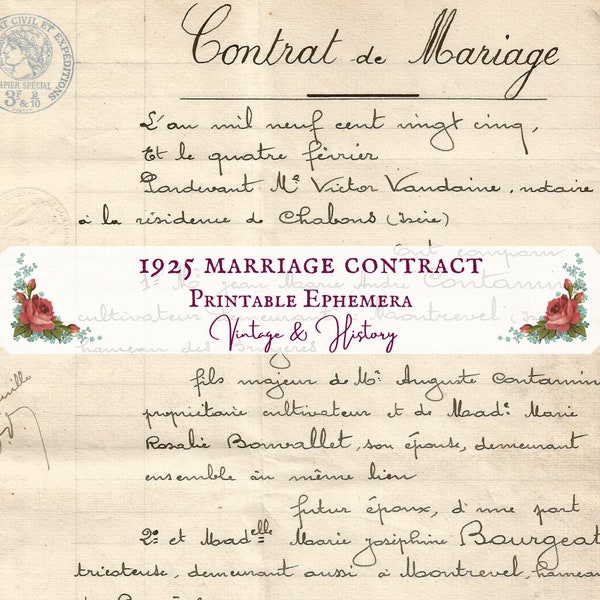 Contrat de Mariage
RT CIVIL ET EXPEDITIONS
PAPIER SPÉCIAL
3F 2
& 10
L'an mil neuf cent vingt cinq,
Et le quatre février
Pardevant Me Victor Vaudaine, notaire
à la résidence de Chabons (Isère)
Ont comparu
1° Mr Jean Marie André Contamin
cultivateur demeurant à Montrevel (Is
hameau des Bruyères
1925 MARRIAGE CONTRACT
PRINTABLE EPHEMERA
Vintage & History
fils majeur de Mr Auguste Contamin
propriétaire cultivateur et de Made Marie
Rosalie Bonvallet, son épouse, demeurant
ensemble au même lieu
futur époux, d'une part
2° et Madelle Marie Joséphine Bourgeat
tricoteuse, demeurant aussi à Montrevel, hameau